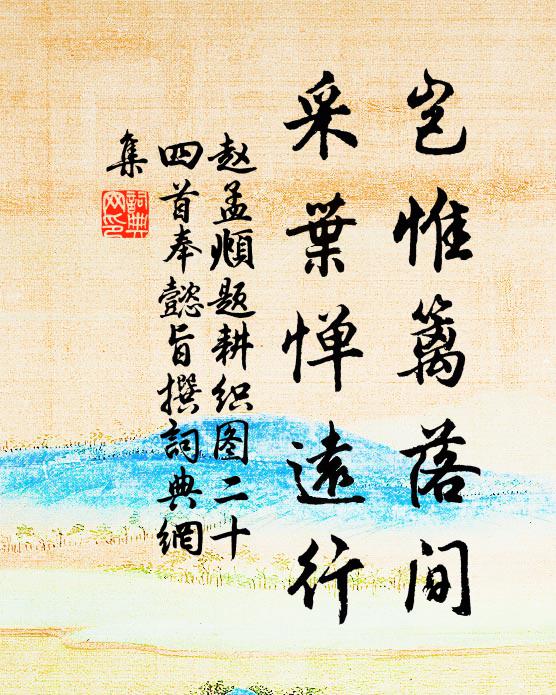 岂惟篱落间
采葉惮遠行
赵孟頫题耕织图二十
四首奉懿旨撰詞典網
集
詞典
网印